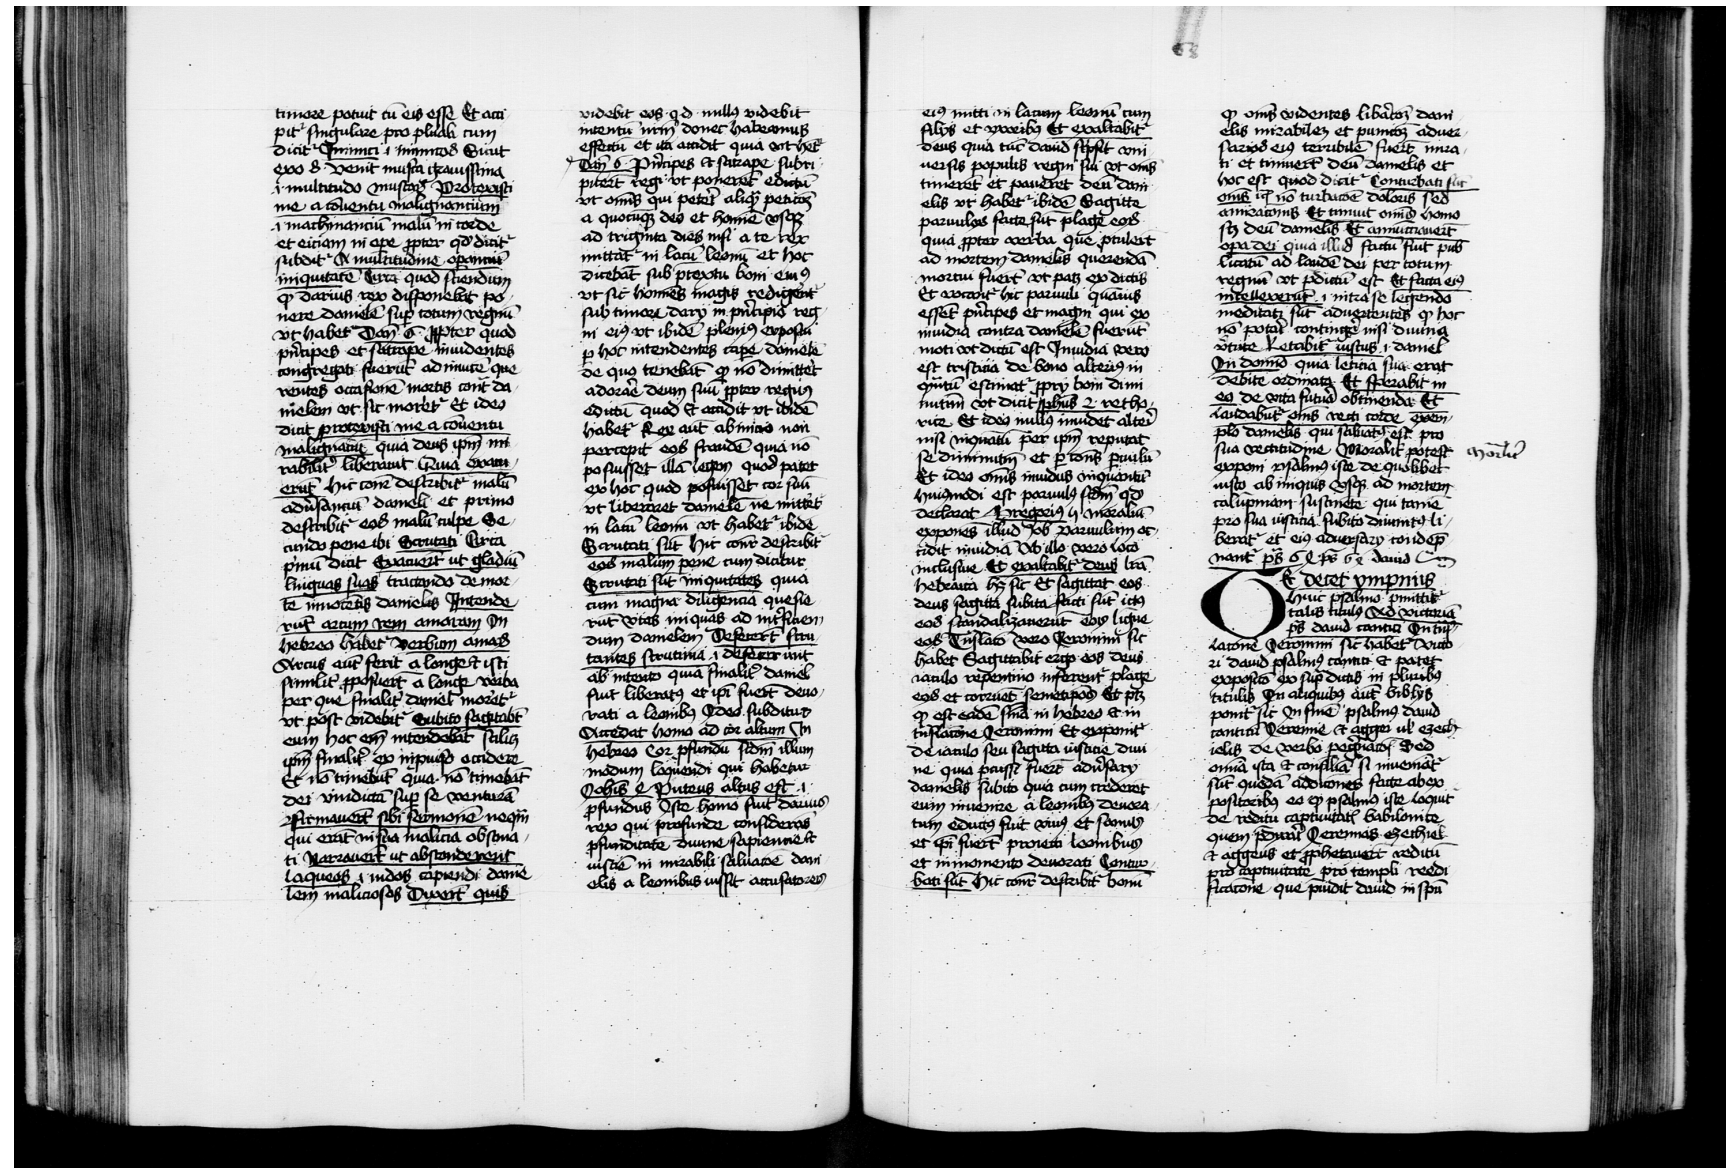 timore potuit cū eis esse Et acci
pit͛ singulare pro plurali cum
dicit͛ Inimici .i. inimicos Sicut
exo 8. venit musca gravissima
.i. multitudo muscaꝝ Protexisti
me a cōventu malignantium
.i. machinanciū malū in corde
et eciam in ope ꝓpter qd' dicit͛
subdit͛ A multitudine opanciū
iniquitatē Circa quod sciendum
ꝙ darius rex disponebat po-
nere danielē sup totum regnū
vt habet͛ Dan 6 ꝓpter quod
pncipes et satrape invidentes
congregati fuerūt ad invicē que
rentes occasionē mortis cont͛ da-
nielem vt sic moret͛ Et ideo
dicit protexisti me a cōventu
malignāciū quia deus ipm mi
rabilit͛ liberavit Quia exacu-
erūt Hic cont͛ describit͛ malū
adusanciū danieli et primo
describit͛ eos malū culpe Se-
cundo pene ibi Scrutati Circa
pmū dicit Exacuerūt ut gladiū
linguas suas tractando de mor-
te innocentis danielis Intende-
rūt arcum rem amaram In
hebreo habet͛ verbum amarū
Arcus aut ferit a longe et isti
similit͛ ꝓposuerūt a longe verba
per que finalit͛ daniel moret͛
vt post videbit͛ Subito sagittabūt
eum hoc em intendebāt scilicet
ipm finalit͛ ex inpviso occidere
Et nō timebūt quia nō timebāt
dei vindictā sup se venturā
Firmaverūt sibi sermonē neqm
qui erāt in sua malicia obstina-
ti Narraverūt ut absconderent
laqueos .i. modos capiendi danie
lem maliciosos Dixerūt quis
videbit eos q.d. nullus videbit
intentū nrm donec habeamus
effectū et ita accidit quia vt het͛
Dan 6. Pncipes et satrape subri-
puerūt regi vt poneret edictū
vt omis qui peteret aliqā peticōꝫ
a quocūqꝫ deo et homie usqꝫ
ad triginta dies nisi a te rex
mittat͛ in lacū leonū et hoc
dicebāt sub ptextu boni eius
vt sic homies magis redigerēt͛
sub timore dary in pncipio reg-
ni eius vt ibidē plenius exposui
p hoc intendentes cape danielē
de quo tenebāt ꝙ nō dimittet
adorare deum suū ꝓpter regium
edictū quod et accidit vt ibidē
habet͛ Rex aut ab inicio non
percepit eos fraudē quia nō
posuisset illā legem quod patet
ex hoc quod posuisset cor suū
vt liberaret danielē ne mittret͛
in lacū leonū vt habet͛ ibidē
Scrutati sūt Hic cont͛ describit͛
eos malum pene cum dicitur
Scrutati sūt iniquitates quia
cum magna diligencia quesie
rūt vias iniquas ad intficien-
dum danielem Defecerūt scru
tantes scrutinia .i. defecerunt
ab intento quia finalit͛ daniel
fuit liberatus et ipi fuerūt devo-
rati a leonibus Ideo subditur
Accedat homo ad cor altum In
hebreo Cor pfundū scdm illum
modum loquendi qui habetur
Iohis 4 Puteus altus est .i.
pfundus Iste homo fuit darius
rex qui profunde considerās
pfunditatē divine sapiencie et
iusticie in mirabili salvacōe dani-
elis a leonibus iussit accusatores
eius mitti in lacum leonū cum
filys et vxoribus Et exaltabit͛
deus quia tūc david scpsit vni
versis populis regni sui vt omes
timerent et paverēt deū dani
elis vt habet͛ ibidē Sagitte
parvulorꝫ facte sūt plage eoꝝ
quia ꝓpter verba que ptulerūt
ad mortem danielis querendā
mortui fuerūt vt patꝫ ex dictis
Et vocant͛ hic parvuli quāvis
essēt pncipes et magni qui ex
invidia contra danielē fuerūt
moti vt dictū est Invidia vero
est tristicia de bono alterius in
quātū estimat͛ ppry boni dimi
nutivū vt dicit phus 2 retho-
rice Et ideo nullus invidet alteri
nisi inquātū per ipm reputat
se diminutū et p cons parvulū
Et ideo omis invidus inquantū
huiusmodi est parvulus scdm qd'
declarat Gregorius 5 moraliū
exponēs illud Iob parvulum oc-
cidit invidia Ab illo vero loco
inclusive Et exaltabit͛ deus lrā
hebraica hꝫ sic Et sagittat eos
deus sagitta subita facti sūt ictus
eoꝝ scandalizaverūt eos ligue
eoꝝ Translacō vero Ieronimi sic
habet Sagittabit ergo eos deus
iaculo repentino inferent͛ plage
eoꝝ et corruēt semetipos Et ptꝫ
ꝙ est eadē snia in hebreo et in
translacōne Ieronimi Et exponit͛
de iaculo seu sagitta iusticie divi
ne qua pcussi fuerūt adusary
danielis subito quia cum crederēt
eum invenire a leonibus devora-
tum eductus fuit vivus et sanus
et ipi fuerūt proiecti leonibus
et in momento devorati Contur-
bati sūt Hic cont͛ describit͛ bonū
ꝙ omes videntes libacōꝫ dani
elis mirabilem et punicōꝫ adver-
sarioꝝ eius terribilē fuerūt mira-
ti et timuerūt deū danielis et
hoc est quod dicit͛ Conturbati sūt
omes nō turbacōe doloris sed
admiracionis Et timuit omis homo
scꝫ deū danielis Et annūciaverūt
opa dei quia illud factū fuit pub
licatū ad laudē dei per totum
regnū vt pdictū est Et facta eius
intellexerūt .i. intra se legendo
meditati sūt advertentes ꝙ hoc
nō poterat contingere nisi divina
vtute Letabit͛ iustus .i. daniel
In domino quia leticia sua erat
debite ordinata Et sperabit in
eo de vita futura obtinenda Et
laudabūt͛ omes recti corde exem-
plo danielis qui salvatus est pro
sua rectitudine Moralit͛ potest
exponi psalmus iste de quolibet
iusto ab iniquis usqꝫ ad mortem
calūpniam sustinente qui tamē
pro sua iusticia subito divinitus li-
berat͛ et eius adversary condep-
nant͛ ps david
Te decet ympnus
Huic psalmo pmittit͛
talis titulus Ad victoriā
ps david cantici In trās-
lacione Ieronimi sic habet͛ Victo-
ri david psalmus cantici et patet
expositō ex sup dictis in pluribus
titulis In aliquibus aut biblys
ponit͛ sic In finē psalmus david
canticū Ieremie et aggei vel ezech
ielis de verbo pegrinacōis Sed
omia ista et consimilia si inveniāt͛
sūt quedā addicōnes facte ab ex
positoribus eo ꝙ psalmus iste loquit͛
de reditu captivitatis babilonice
quem pdixerūt Ieremias ezechiel
et aggeus et ꝓphetaverūt reditū
pro captivitate pro templi reedi
ficacōne que pvidit david in spū
Moralit͛